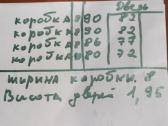 Дверь
коробка 890 82
коробка 890 82
коробка 840 77
коробка 780 72
ширина коробки 8
Высота дверей 1,95